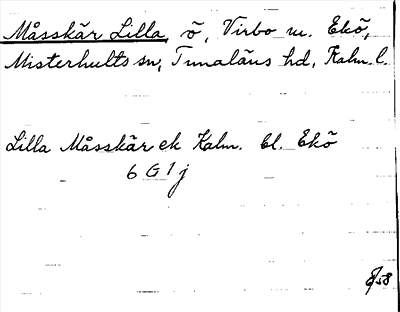 Måsskär Lilla, ö, Virbo m. Ekö,
Misterhults sn, Tunaläns hd, Kalm. l.
Lilla Måsskär ek Kalm. bl. Ekö
6 G 1 j